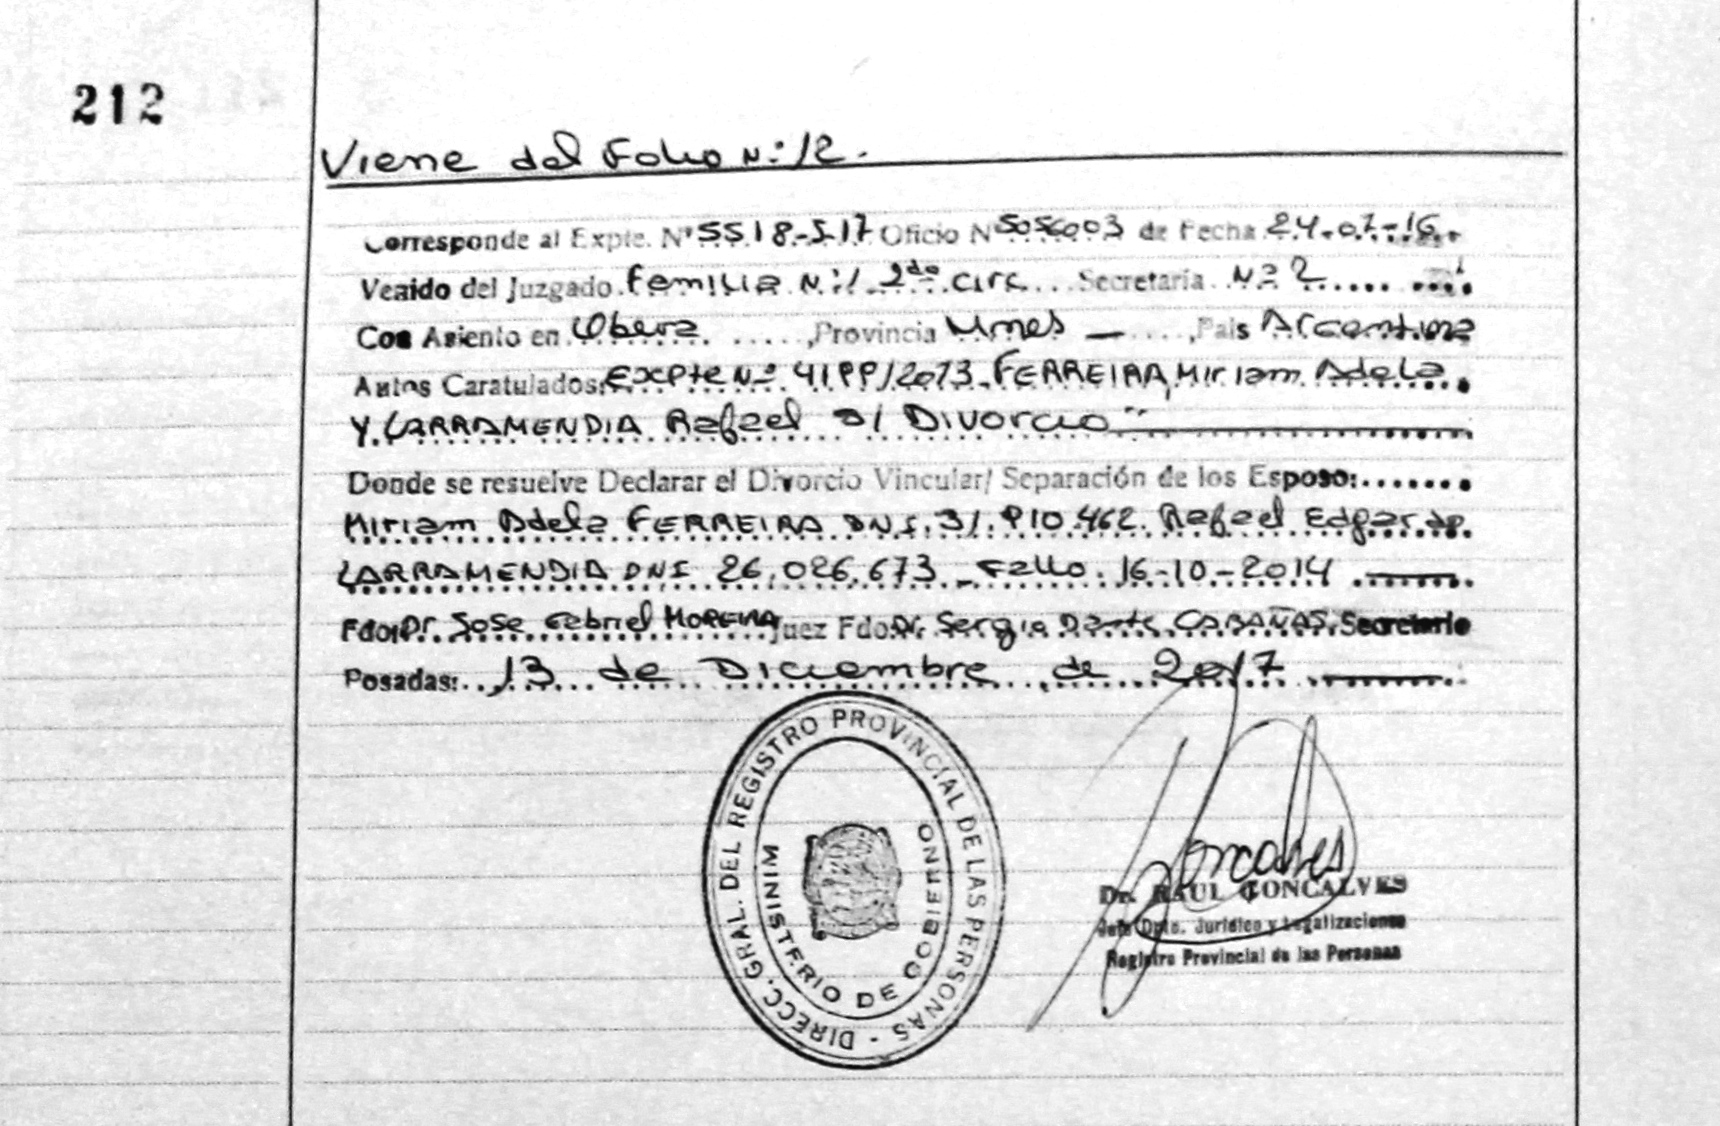 212
Viene del Folio N: 12.
Corresponde al Expte. Nº 5518-S-17 Oficio Nº 5056003 de Fecha 24-07-16.
Venido del Juzgado Familia N:1 2da circ Secretaría Nº 2
Con Asiento en Obera, Provincia Mnes, País Argentina
Autos Caratulados: Expte Nº 41PP/2013 FERREIRA, Miriam Adela
Y LARRAMENDIA Rafael S/ Divorcio"
Donde se resuelve Declarar el Divorcio Vincular/ Separación de los Esposo:
Miriam Adela FERREIRA DNI. 31.910.462. Rafael Edgardo
LARRAMENDIA DNI 26.026.673 Fallo: 16-10-2014
Fdo: Dr. Jose Gabriel MOREIRA Juez Fdo: Dr. Sergio Dante CABAÑAS Secretario
Posadas: 13 de Diciembre de 2017
DIRECC. GRAL. DEL REGISTRO PROVINCIAL DE LAS PERSONAS -
MINISTERIO DE GOBIERNO
Goncalves
Dr. RAUL GONCALVES
Jefe Dpto. Jurídico y Legalizaciones
Registro Provincial de las Personas